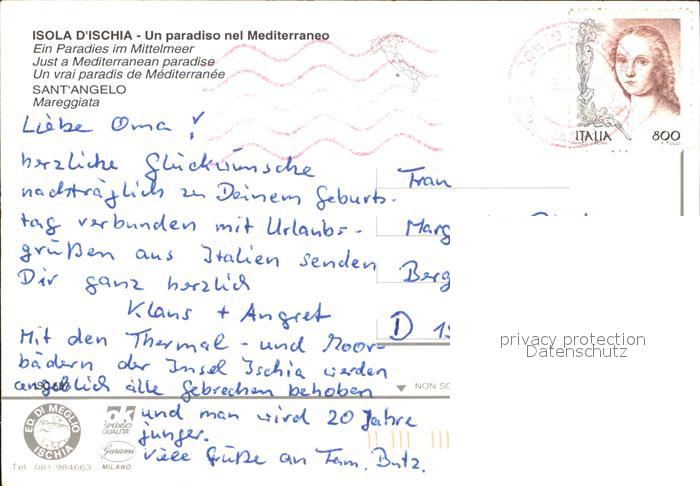 ISOLA D'ISCHIA - Un paradiso nel Mediterraneo
Ein Paradies im Mittelmeer
Just a Mediterranean paradise
Un vrai paradis de Méditerranée
SANT'ANGELO
Mareggiata
Liebe Oma!
herzliche Glückwünsche
nachträglich zu Deinem Geburts-
tag verbunden mit Urlaubs-
grüßen aus Italien senden
Dir ganz herzlich
Klaus + Angret
Mit den Thermal- und Moor-
bädern der Insel Ischia werden
angeblich alle Gebrechen behoben
und man wird 20 Jahre
jünger.
Viele Grüße an Fam. Butz.
ITALIA 800
Frau
Marg
Berg
D 15
privacy protection
Datenschutz
NON SC
ED. DI MEGLIO
ISCHIA
Tel. 081/984663
OK
SPEDISCI
QUALITA'
Garami
MILANO